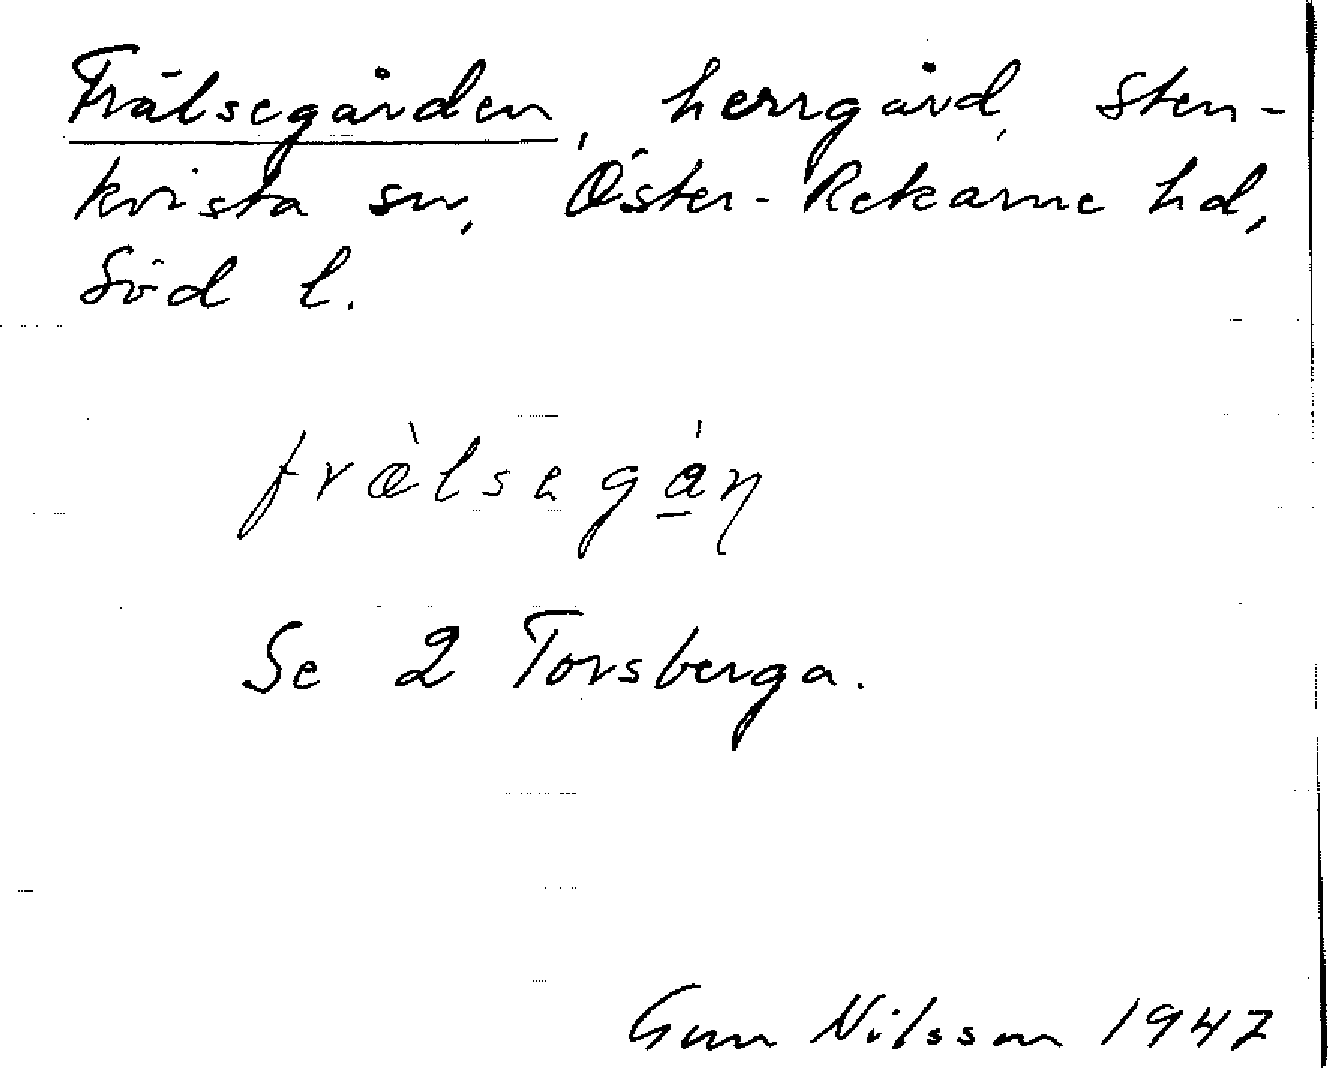 Frälsegården, herrgård, Sten-
kvista sn, Öster-Rekarne hd,
Söd l.
fræ̀lsegá̱ɳ
Se 2 Torsberga.
Gun Nilsson 1947